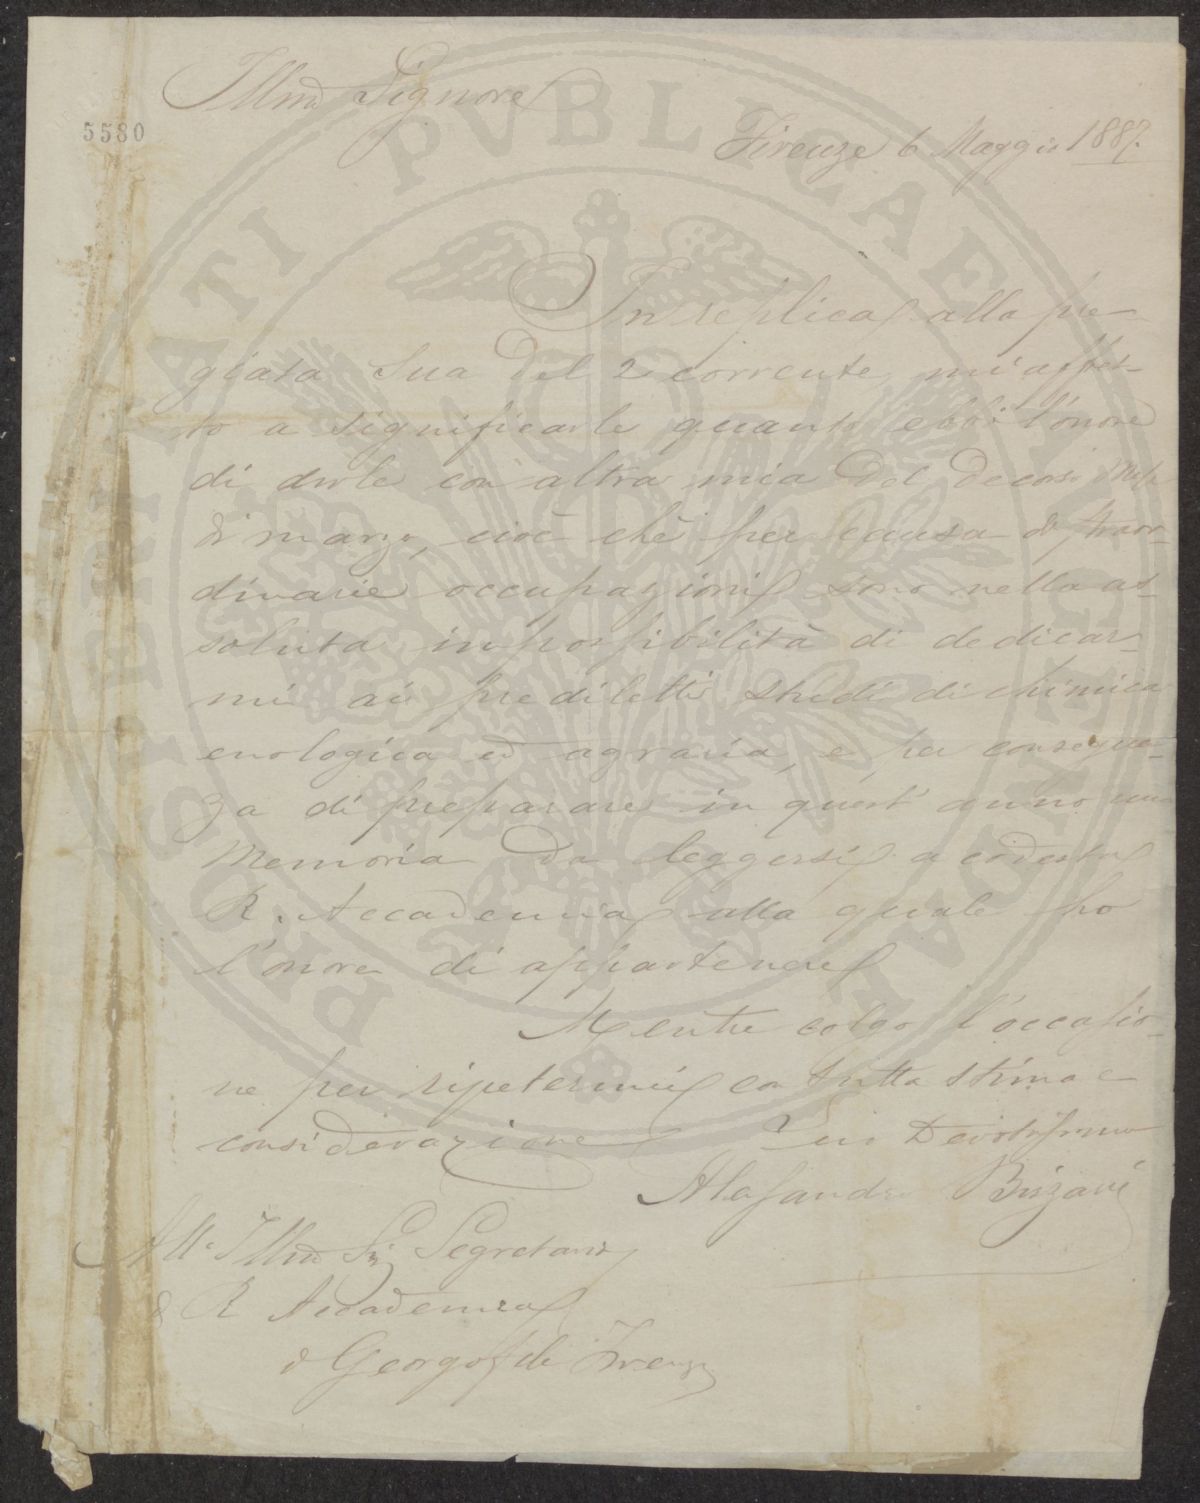 Illmo Signore
5580
Firenze 6 Maggio 1887.
In replica alla pre-
giata Sua del 2 corrente, mi affret-
to a significarle quanto ebbi l'onore
di dirle con altra mia del decorso mese
di marzo, cioè chè per causa di straor-
dinarie occupazioni sono nella as-
soluta impossibilità di dedicar-
mi ai prediletti studi di chimica
enologica ed agraria, e per conseguen-
za di preparare in quest' anno una
Memoria da leggersi a codesta
R. Accademia alla quale ho
l'onore di appartenere
Mentre colgo l'occasio-
ne per ripetermi con tutta stima e
considerazione
Suo Devotissimo
Alessandro Bizzarri
All' Illmo Sig Segretario
di R Accademia
di Georgofili Firenze
PROSPERITATI PVBLICAE AVGENDAE